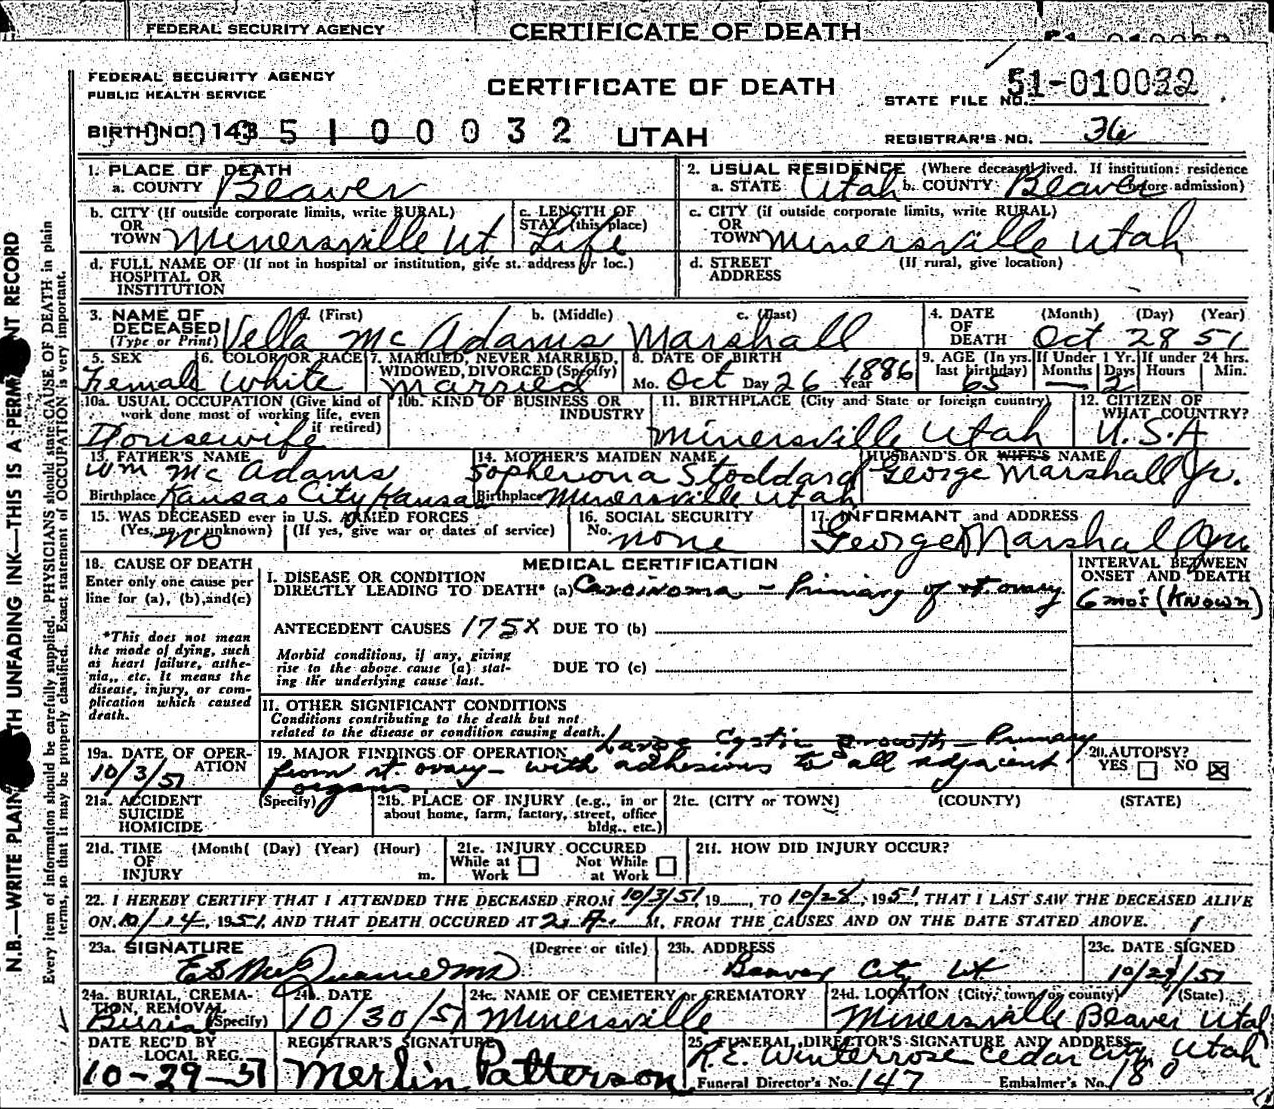 FEDERAL SECURITY AGENCY CERTIFICATE OF DEATH
FEDERAL SECURITY AGENCY
PUBLIC HEALTH SERVICE
CERTIFICATE OF DEATH
STATE FILE NO. 51-010032
BIRTH NO. 143 5 1 0 0 0 3 2 UTAH
REGISTRAR'S NO. 36
1. PLACE OF DEATH
a. COUNTY Beaver
2. USUAL RESIDENCE (Where deceased lived. If institution: residence before admission)
a. STATE Utah b. COUNTY Beaver
b. CITY (If outside corporate limits, write RURAL)
OR
TOWN Minersville Ut
c. LENGTH OF
STAY (this place)
Life
c. CITY (if outside corporate limits, write RURAL)
OR
TOWN Minersville Utah
d. FULL NAME OF (If not in hospital or institution, give st. address or loc.)
HOSPITAL OR
INSTITUTION
d. STREET (If rural, give location)
ADDRESS
3. NAME OF a. (First) b. (Middle) c. (Last)
DECEASED
(Type or Print) Vella McAdams Marshall
4. DATE (Month) (Day) (Year)
OF
DEATH Oct 28 51
5. SEX
Female
6. COLOR OR RACE
White
7. MARRIED, NEVER MARRIED,
WIDOWED, DIVORCED (Specify)
Married
8. DATE OF BIRTH
Mo. Oct Day 26 Year 1886
9. AGE (In yrs. last birthday)
65
If Under 1 Yr. Months Days
— 2
If under 24 hrs. Hours Min.
10a. USUAL OCCUPATION (Give kind of
work done most of working life, even
if retired)
Housewife
10b. KIND OF BUSINESS OR
INDUSTRY
11. BIRTHPLACE (City and State or foreign country)
Minersville Utah
12. CITIZEN OF
WHAT COUNTRY?
U.S.A
13. FATHER'S NAME
Wm McAdams
Birthplace Kansas City Kansas
14. MOTHER'S MAIDEN NAME
Stoddard
Birthplace Minersville Utah
HUSBAND'S OR WIFE'S NAME
George Marshall Jr.
15. WAS DECEASED ever in U.S. ARMED FORCES
(Yes, no or unknown) (If yes, give war or dates of service)
no
16. SOCIAL SECURITY
No. none
17. INFORMANT and ADDRESS
George Marshall Jr
18. CAUSE OF DEATH
Enter only one cause per
line for (a), (b), and (c)
*This does not mean
the mode of dying, such
as heart failure, asthe-
nia,, etc. It means the
disease, injury, or com-
plication which caused
death.
MEDICAL CERTIFICATION
INTERVAL BETWEEN
ONSET AND DEATH
I. DISEASE OR CONDITION
DIRECTLY LEADING TO DEATH* (a) Carcinoma - Primary of rt. ovary
6 mo's (Known)
ANTECEDENT CAUSES 175X DUE TO (b)
Morbid conditions, if any, giving
rise to the above cause (a) stat-
ing the underlying cause last.
DUE TO (c)
II. OTHER SIGNIFICANT CONDITIONS
Conditions contributing to the death but not
related to the disease or condition causing death.
19a. DATE OF OPER-
ATION
10/3/51
19. MAJOR FINDINGS OF OPERATION Large Cystic Growth - Primary
from rt. ovary - with adhesions to all adjacent
organs
20. AUTOPSY?
YES NO X
21a. ACCIDENT (Specify)
SUICIDE
HOMICIDE
21b. PLACE OF INJURY (e.g., in or
about home, farm, factory, street, office
bldg., etc.)
21c. (CITY or TOWN) (COUNTY) (STATE)
21d. TIME (Month( (Day) (Year) (Hour)
OF
INJURY m.
21e. INJURY OCCURED
While at Work Not While at Work
21f. HOW DID INJURY OCCUR?
22. I HEREBY CERTIFY THAT I ATTENDED THE DECEASED FROM 10/3/51 19, TO 10/28, 1951, THAT I LAST SAW THE DECEASED ALIVE
ON 10/14, 1951, AND THAT DEATH OCCURED AT 2 A. M. FROM THE CAUSES AND ON THE DATE STATED ABOVE.
23a. SIGNATURE (Degree or title)
MD
23b. ADDRESS
Beaver City Ut
23c. DATE SIGNED
10/29/51
24a. BURIAL, CREMA-
TION, REMOVAL
(Specify)
Burial
24b. DATE
10/30/51
24c. NAME OF CEMETERY or CREMATORY
Minersville
24d. LOCATION (City, town or county) (State)
Minersville Beaver Utah
DATE REC'D BY
LOCAL REG.
10-29-51
REGISTRAR'S SIGNATURE
Merlin Patterson
25. FUNERAL DIRECTOR'S SIGNATURE AND ADDRESS
R.E. Winterrose Cedar City Utah
Funeral Director's No. 147 Embalmer's No. 180
N.B.—WRITE PLAIN TH UNFADING INK—THIS IS A PERM NT RECORD
Every item of information should be carefully supplied. PHYSICIANS should state CAUSE OF DEATH in plain
terms, so that it may be properly classified. Exact statement of OCCUPATION is very important.